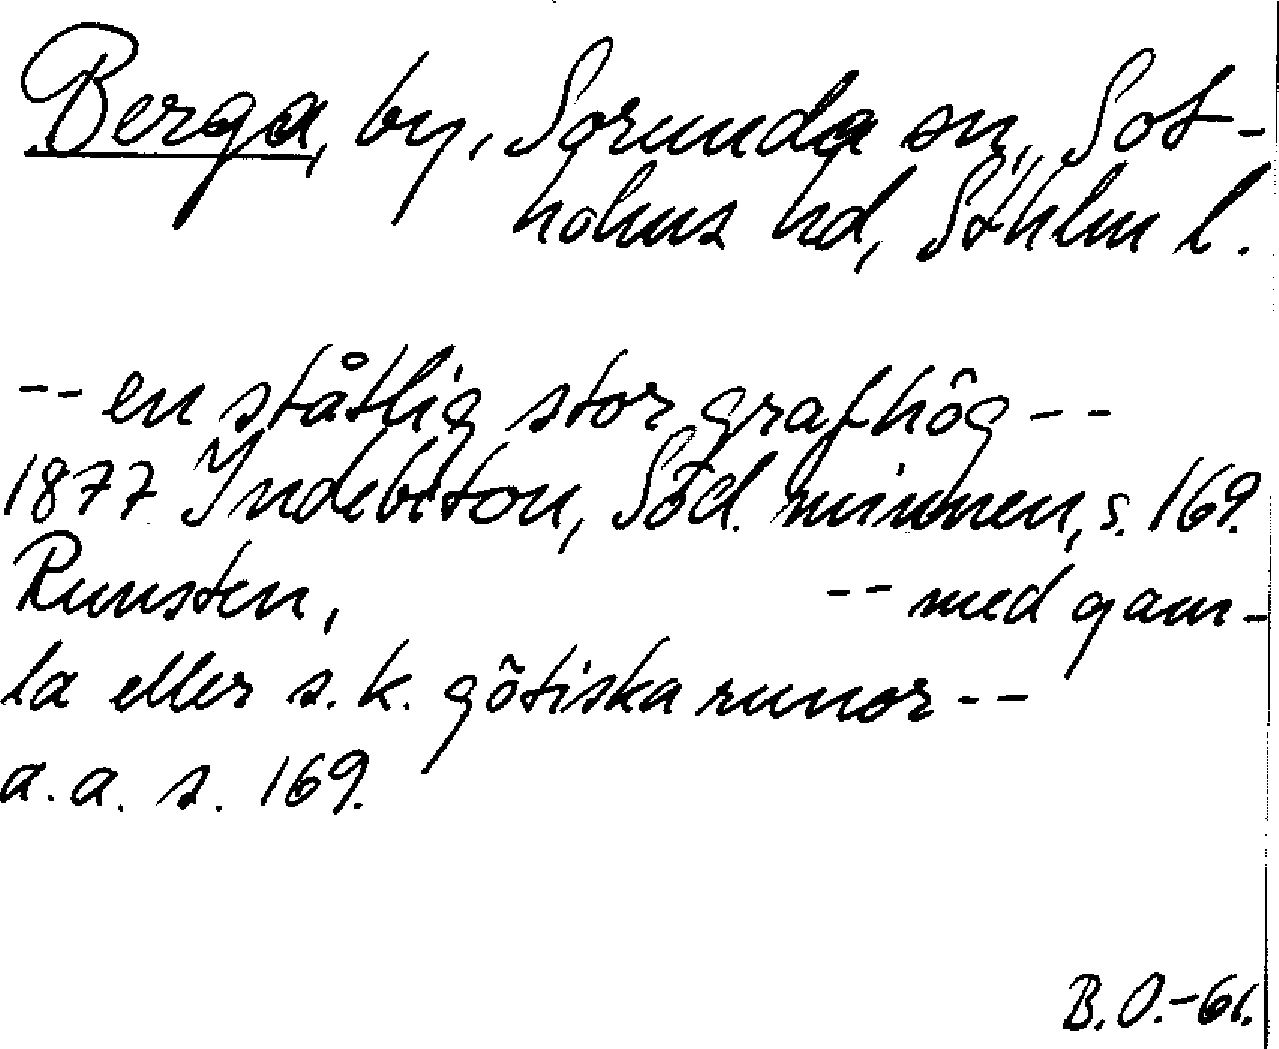 Berga, by, Sorunda sn, Sot-
holms hd, Sthlm l.
-- en ståtlig stor grafhög --
1877 Indebetou, Söd. minnen, s. 169.
Runsten, -- med gam-
la eller s.k. götiska runor --
a.a. s. 169.
B.O.-61.